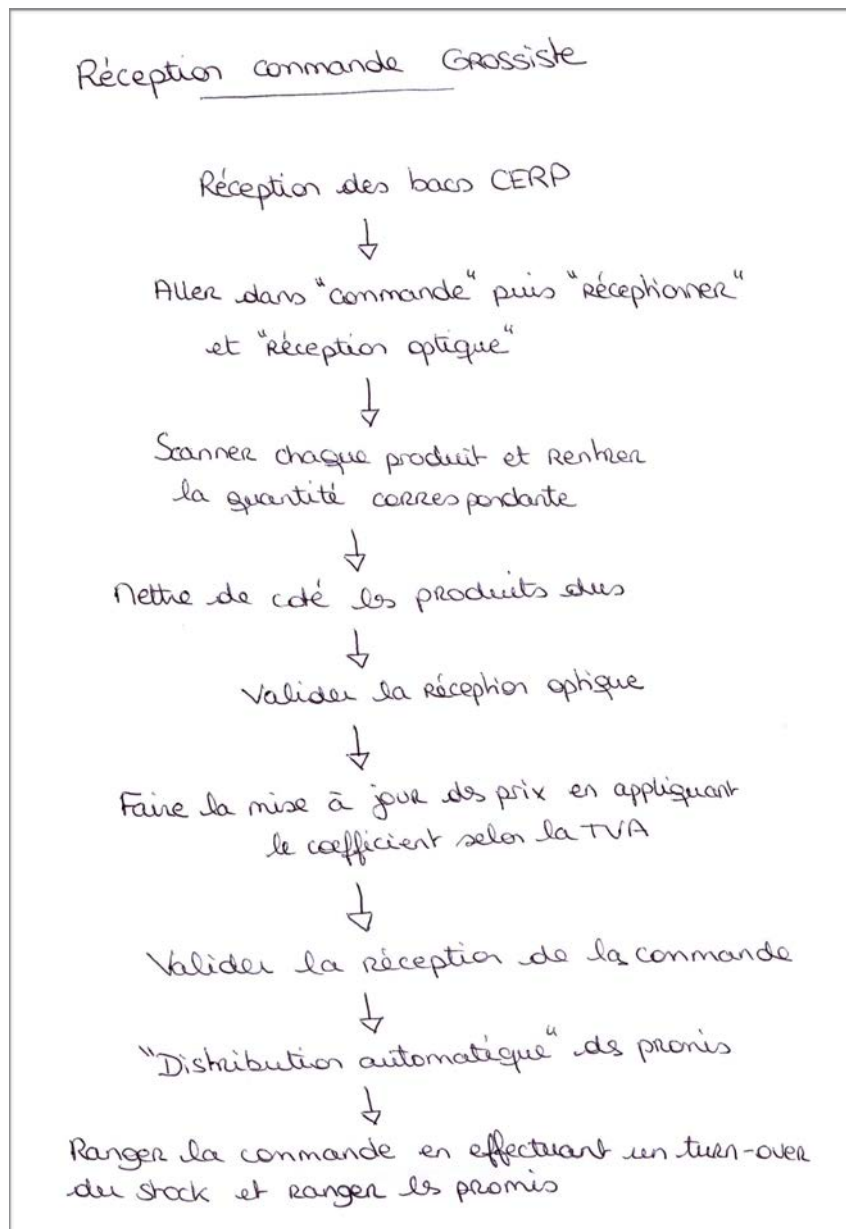 Réception commande GROSSISTE
Réception des bacs CERP
Aller dans "commande" puis "réceptionner"
et "réception optique"
Scanner chaque produit et rentrer
la quantité correspondante
Mettre de coté les produits dus
Valider la réception optique
Faire la mise à jour des prix en appliquant
le coefficient selon la TVA
Valider la réception de la commande
"Distribution automatique" des promis
Ranger la commande en effectuant un turn-over
du stock et ranger les promis